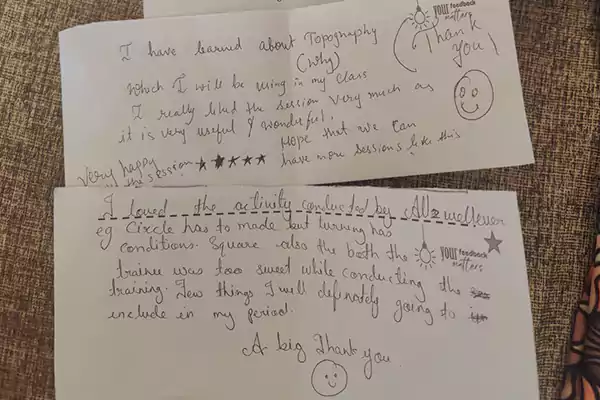 YOUR feedback
matters
Thank
you!
I have learned about Topography
(Why)
which I will be using in my class
I really liked the session very much as
it is very useful & wonderful.
Hope that we can
have more sessions like this
Very happy
this session
I loved the activity conducted by
eg Circle has to made but turning has
conditions. Square also the both the
YOUR feedback
matters
trainee was too sweet while conducting the
training. Few things I will definately going to
include in my period.
A big Thank you